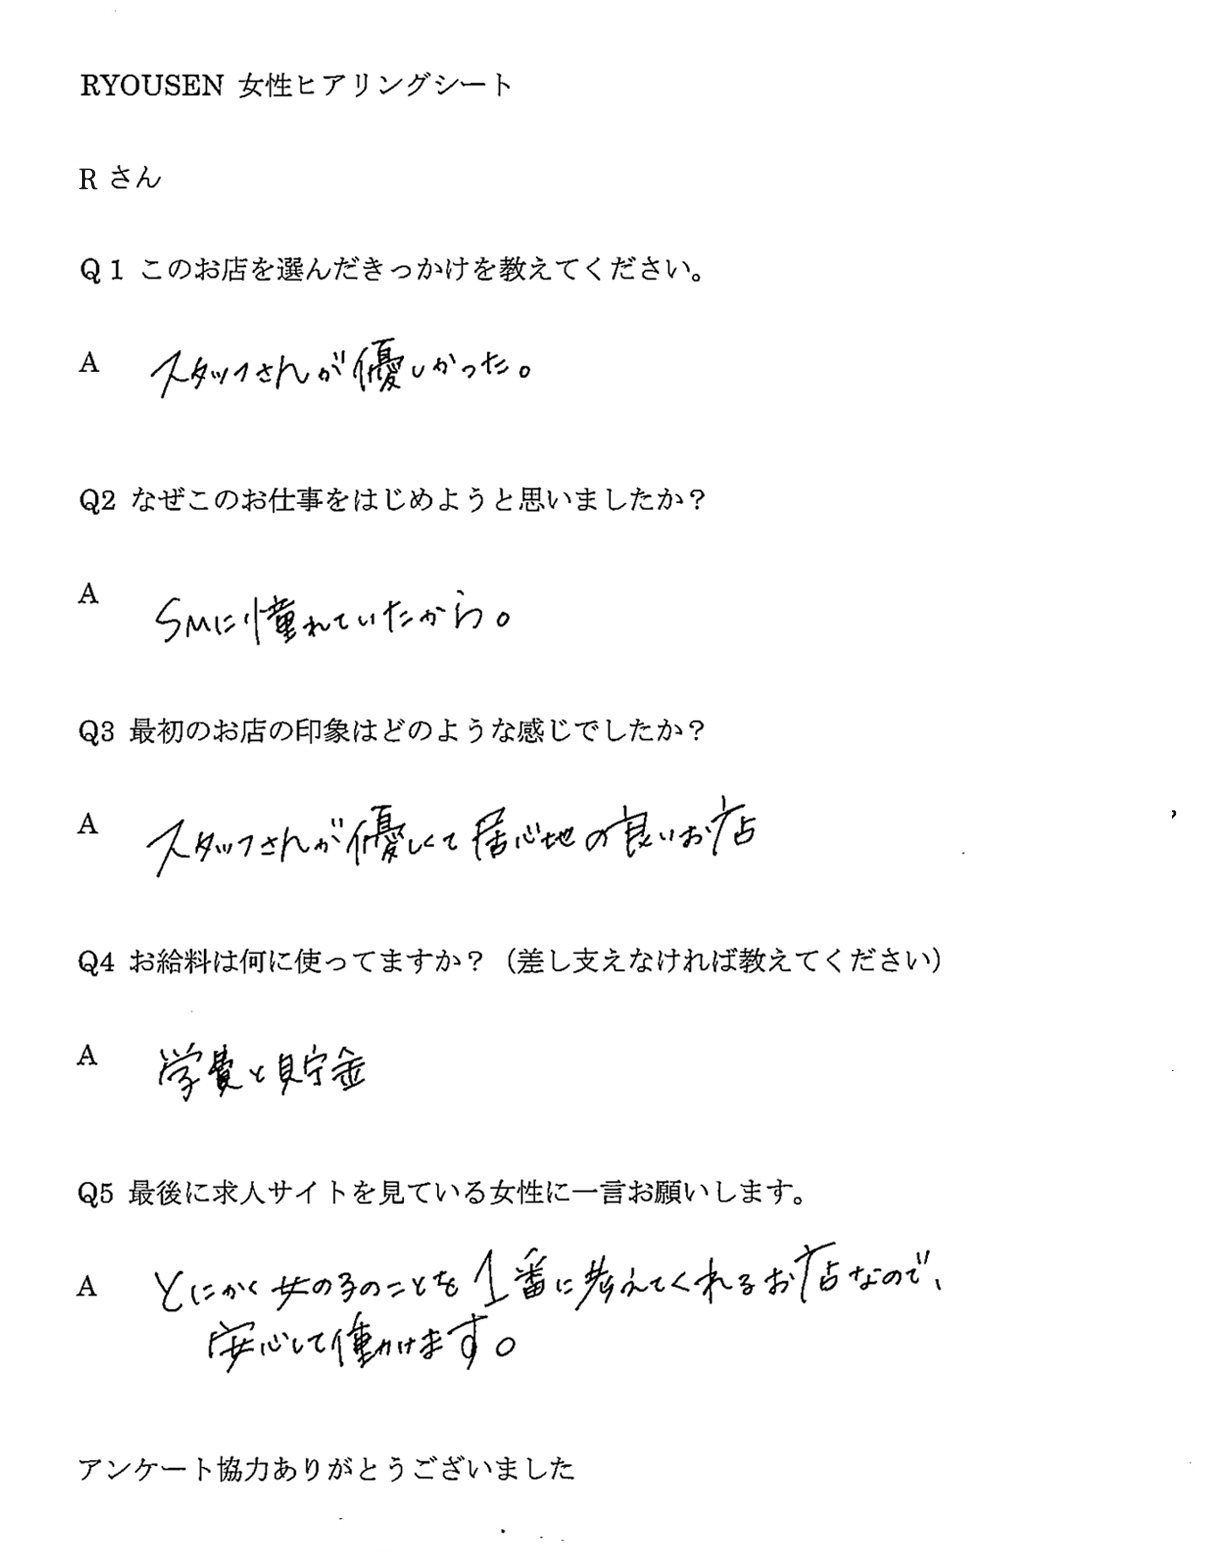 RYOUSEN 女性ヒアリングシート
R さん
Q１ このお店を選んだきっかけを教えてください。
A スタッフさんが優しかった。
Q2 なぜこのお仕事をはじめようと思いましたか？
A SMに憧れていたから。
Q3 最初のお店の印象はどのような感じでしたか？
A スタッフさんが優しくて居心地の良いお店
Q4 お給料は何に使ってますか？（差し支えなければ教えてください）
A 学費と貯金
Q5 最後に求人サイトを見ている女性に一言お願いします。
A とにかく女の子のことを1番に考えてくれるお店なので、
安心して働けます。
アンケート協力ありがとうございました